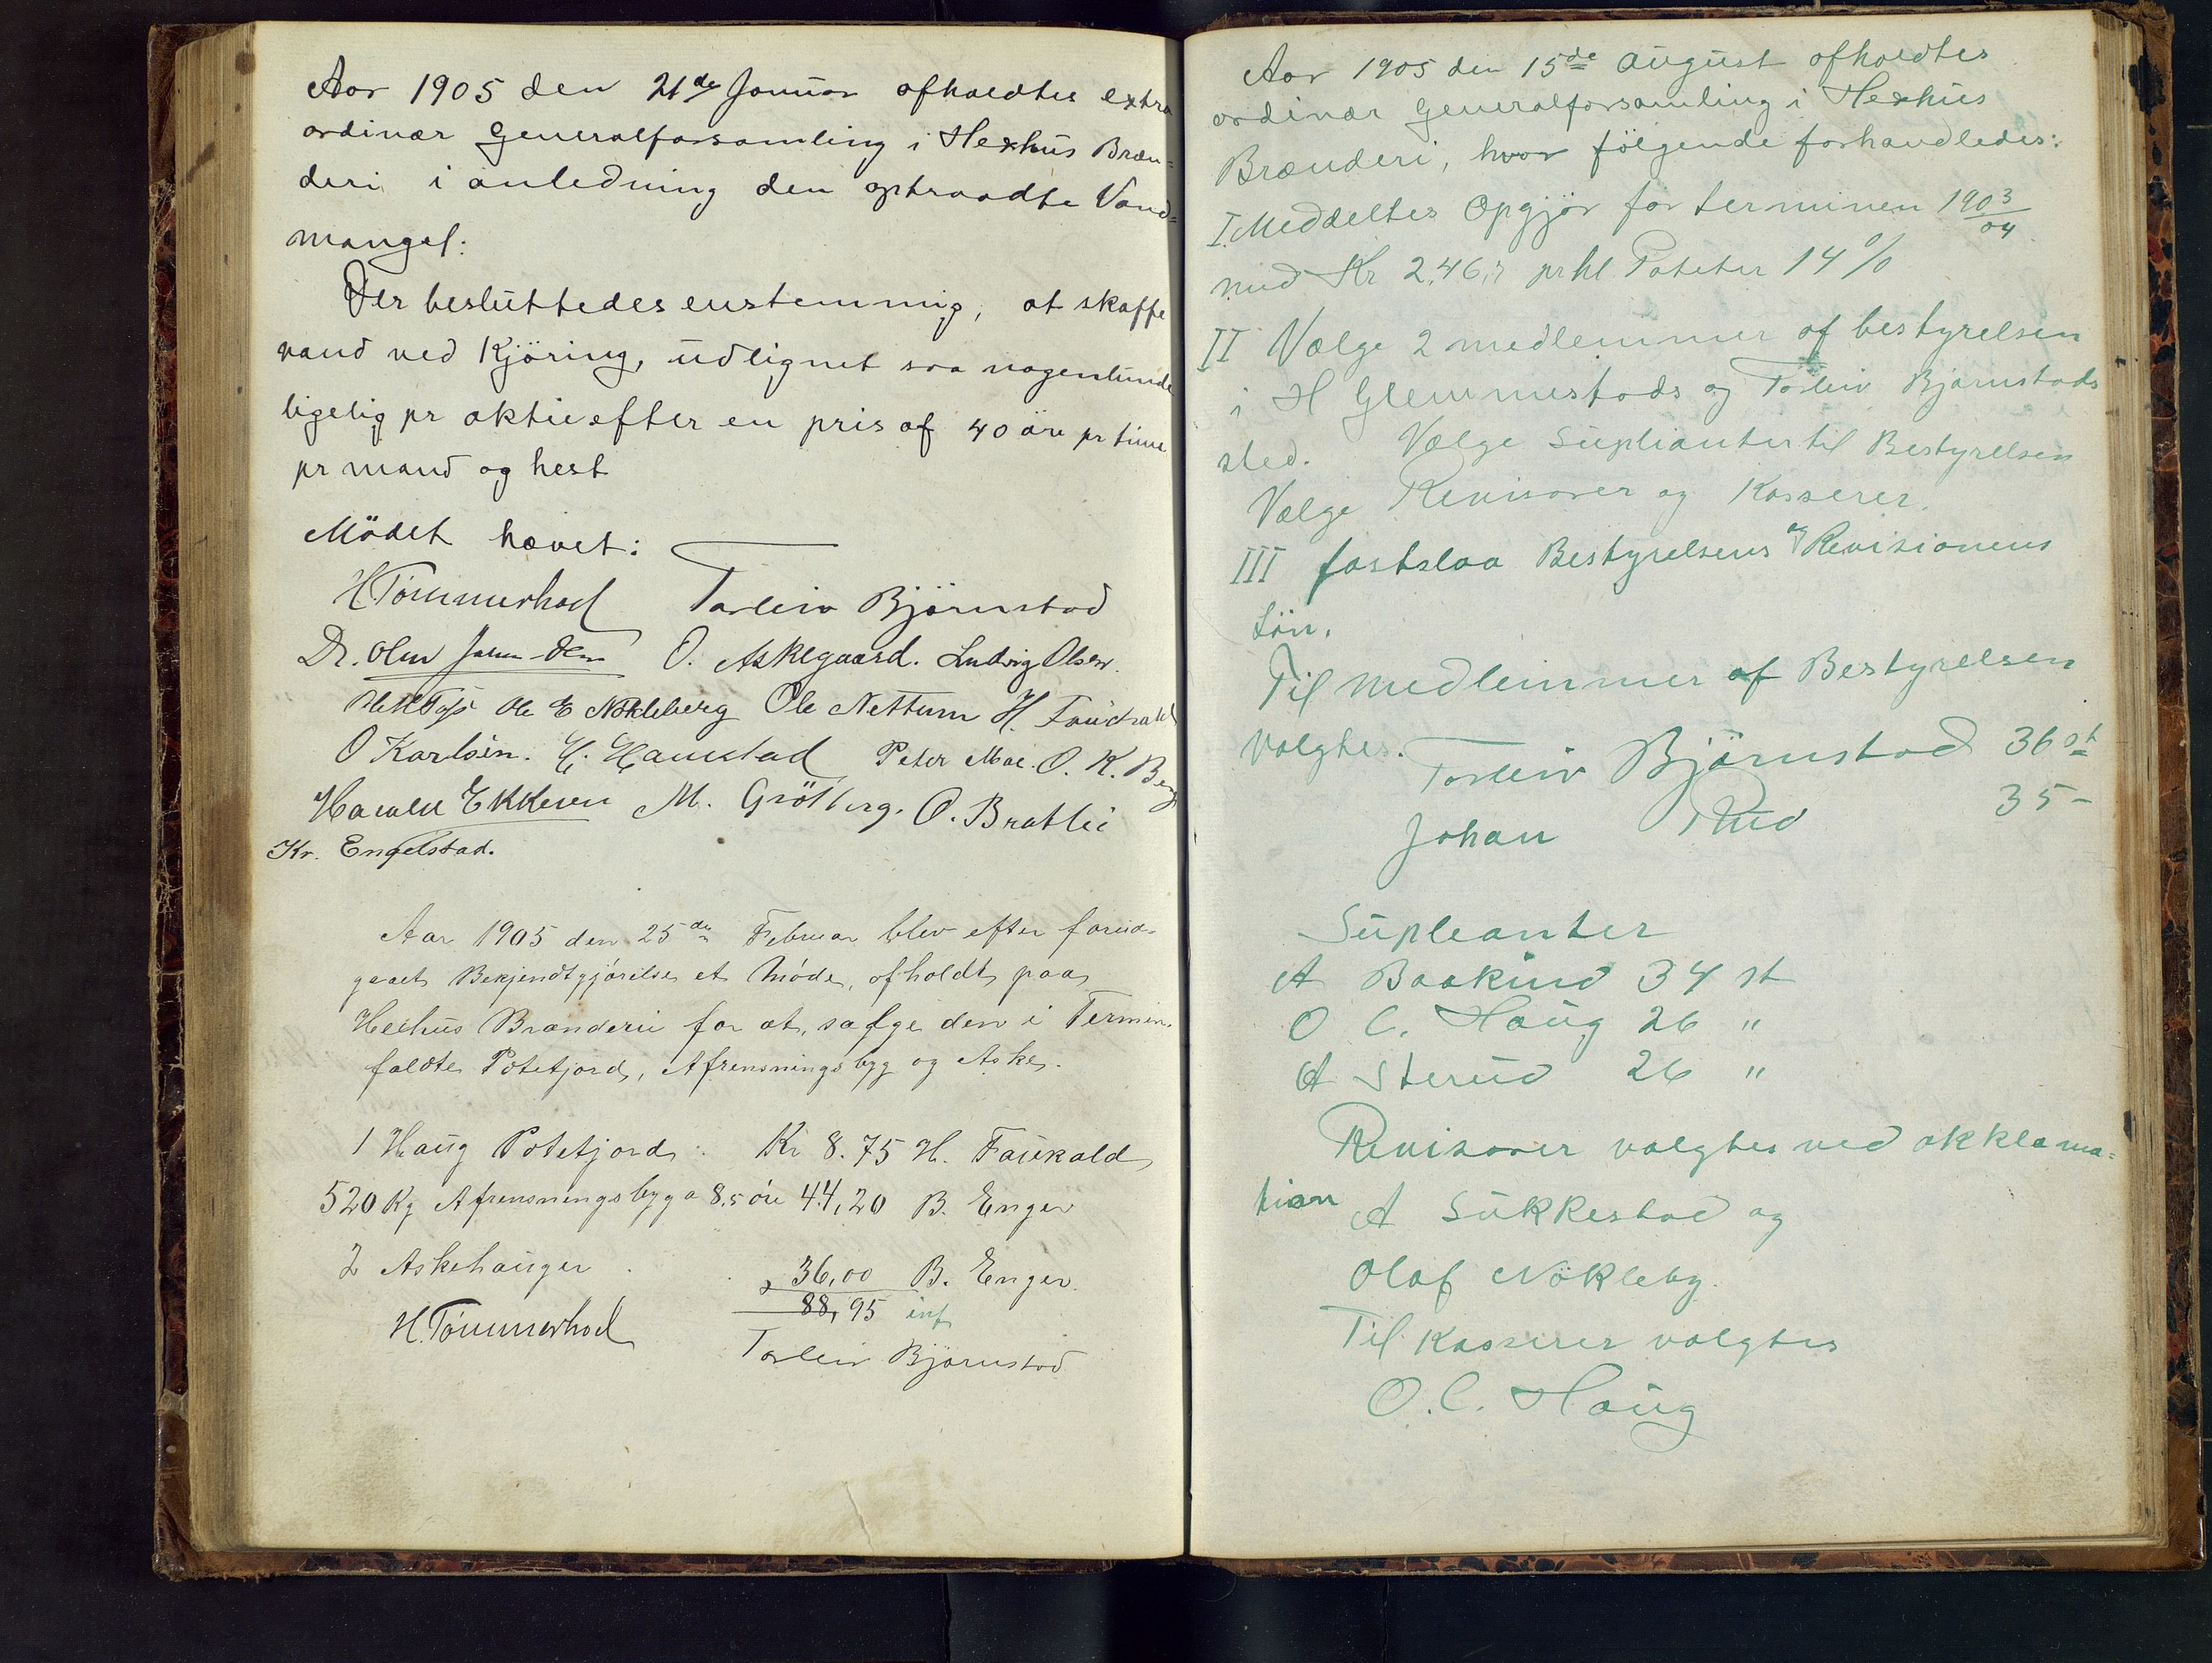 Aar 1905 den 21de Januar afholdtes extra
ordinær Generalforsamling i Hexhus Bræn-
deri i anledning den optraadte Vand-
mangel:
Der besluttedes enstemmig, at skaffe
vand ved Kjöring, udlignet saa nogenlunde
ligelig pr aktie efter en pris af 40 öre pr time
pr mand og hest
Mödet hævet:
H Tömmerhol Torleiv Björnstad
O. Askegaard. Ludvig Olsen.
Ole E Nökleberg Ole Nettum H.
O Karlsen. H. Hamstad Peter Moe. O. K. Berg
M. Grötberg. O. Bratlie
Kr. Engelstad.
Aar 1905 den 25de Februar blev efter forud-
gaaet Bekjendtgjörelse et Möde, afholdt paa
Hexhus Brænderie for at, sælge den i Termin.
faldte Potetjord, Afrensningsbyg og Aske.
1 Haug Potetjord: Kr 8.75 H. Faukald
520 Kg Afrensningsbyg a 8,5 öre 44,20 B. Enger
2 Askehauger . 36,00 B. Enger.
88,95
H. Tömmerhol
Torleiv Björnstad
Aar 1905 den 15de August afholdtes
ordinær Generalforsamling i Hexhus
Brænderi, hvor fölgende forhandledes:
I. Meddeltes Opgjör for terminen 1903/04
med Kr 2,46,7 pr hl Poteter 14%
II Vælge 2 medlemmer af bestyrelsen
i H Glemmestads og Torleiv Bjørnstads
sted. Vælge Suplianter til Bestyrelsen
Vælge Revisorer og Kasserer.
III fastslaa Bestyrelsens og Revisionens
Lön.
Til medlemmer af Bestyrelsen
valgtes. Torleiv Björnstad 36 st
Johan Rud 35 -
Supleanter
A Baakind 34 st
O C. Haug 26 "
A Sterud 26 "
Revisorer valgtes ved akklama-
tion A Sukkestad og
Olaf Nökleby.
Til Kasserer valgtes
O. C. Haug